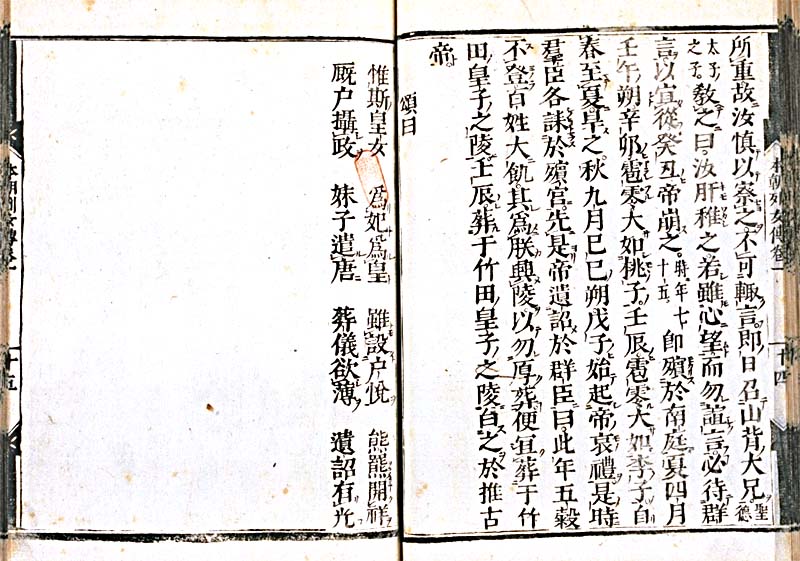 所重故汝慎以察之不可輙言即日召山背大兄聖德
太子之子教之曰汝肝稚之若雖心望而勿諠言必待群
言以宜從癸丑帝崩之時年七十五即殯於南庭夏四月
壬午朔辛卯雹零大如桃子壬辰雹零大如李子自
春至夏旱之秋九月己巳朔戊子始起帝哀禮是時
羣臣各誄於殯宮先是帝遺詔於群臣曰此年五穀
不登百姓大飢其為朕興陵以勿厚葬便宜葬于竹
田皇子之陵壬辰葬于竹田皇子之陵白之於推古
帝
頌曰
惟斯皇女 為妃為皇 雖設户悅 熊羆開祥
厩户攝政 妹子遣唐 葬儀欲薄 遺詔有光
本朝列女傳卷一 十四
本朝列女傳卷一 十五